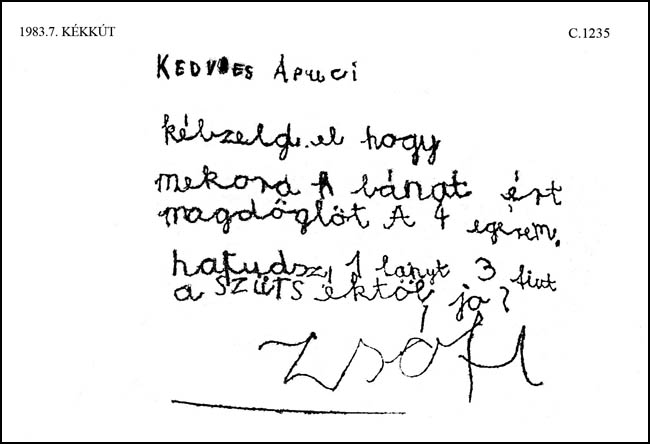 1983.7. KÉKKÚT
C.1235
KEDVES Apuci
kébzeld el hogy
mekora bánat ért
magdöglöt A 4 egérem.
hatudsz, 1 lanyt 3 fiut
a SZÜTS éktöl, jó?
ZSÓFI